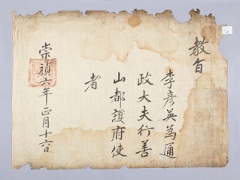 教旨
李彦英為通
政大夫行善
山都護府使
者
崇禎六年正月十六日